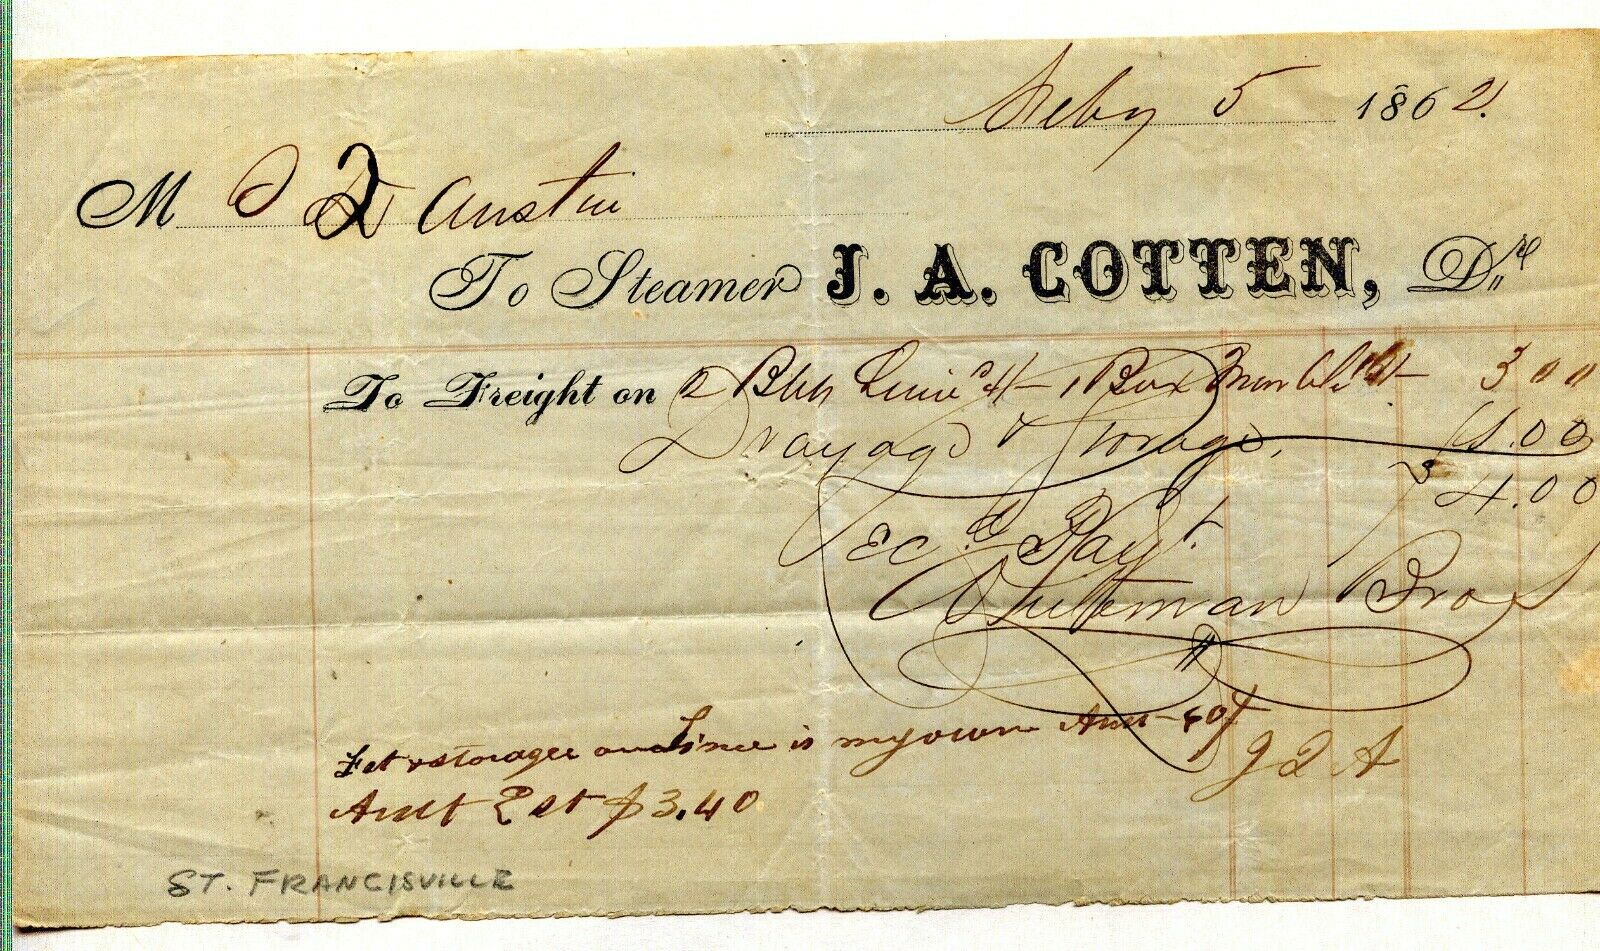 Feby 5 1862.
M J D Austin
To Steamer J. A. COTTEN, Dr
To Freight on 2 Bbls Lime 1 Box Marble 3 00
Drayage & Storage, 1.00
$ 4.00
Rec.d Payt.
Whiteman Bros
Frt & storage on Lime is my own Amt 60
J D A
Amt Est $3.40
ST. FRANCISVILLE